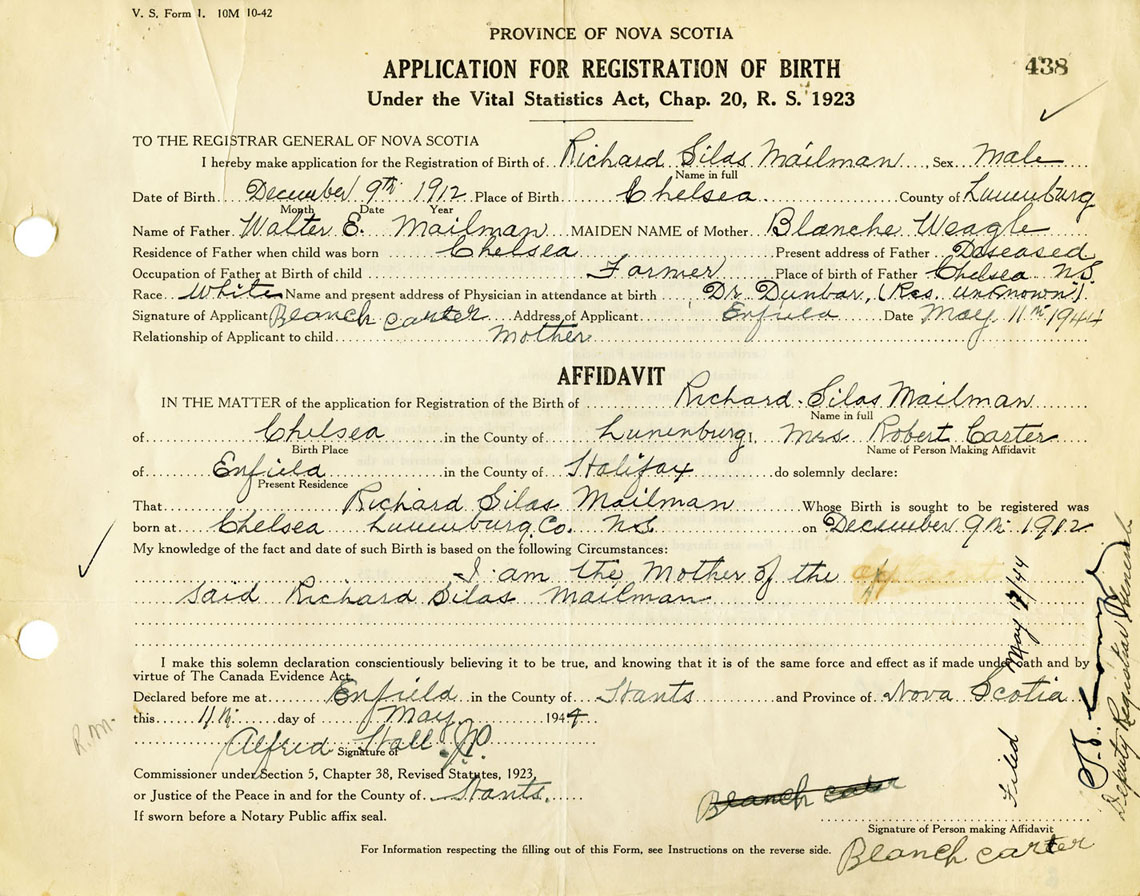 V. S. Form 1. 10M 10-42
PROVINCE OF NOVA SCOTIA
438
APPLICATION FOR REGISTRATION OF BIRTH
Under the Vital Statistics Act, Chap. 20, R. S. 1923
TO THE REGISTRAR GENERAL OF NOVA SCOTIA
I hereby make application for the Registration of Birth of Richard Silas Mailman, Sex Male
Name in full
Date of Birth December 9th 1912 Place of Birth Chelsea County of Lunenburg
Month Date Year
Name of Father Walter E. Mailman MAIDEN NAME of Mother Blanche Weagle
Residence of Father when child was born Chelsea Present address of Father Deseased
Occupation of Father at Birth of child Farmer Place of birth of Father Chelsea N.S.
Race White Name and present address of Physician in attendance at birth Dr. Dunbar, (Res. unknown).
Signature of Applicant Blanch carter Address of Applicant Enfield Date May 11th 1944
Relationship of Applicant to child Mother
AFFIDAVIT
IN THE MATTER of the application for Registration of the Birth of Richard Silas Mailman
Name in full
of Chelsea in the County of Lunenburg I, Mrs Robert Carter
Birth Place Name of Person Making Affidavit
of Enfield in the County of Halifax do solemnly declare:
Present Residence
That Richard Silas Mailman Whose Birth is sought to be registered was
born at Chelsea Lunenburg Co. N.S. on December 9th 1912
My knowledge of the fact and date of such Birth is based on the following Circumstances:
I am the Mother of the
said Richard Silas Mailman
I make this solemn declaration conscientiously believing it to be true, and knowing that it is of the same force and effect as if made under oath and by
virtue of The Canada Evidence Act.
Declared before me at Enfield in the County of Hants and Province of Nova Scotia
this 11th day of May 1944
Alfred Hall J.P.
Signature of
Commissioner under Section 5, Chapter 38, Revised Statutes, 1923,
or Justice of the Peace in and for the County of Hants.
If sworn before a Notary Public affix seal.
Blanch carter
Signature of Person making Affidavit
Blanch carter
For Information respecting the filling out of this Form, see Instructions on the reverse side.
R.M.
Filed May /44
Deputy Registrar General